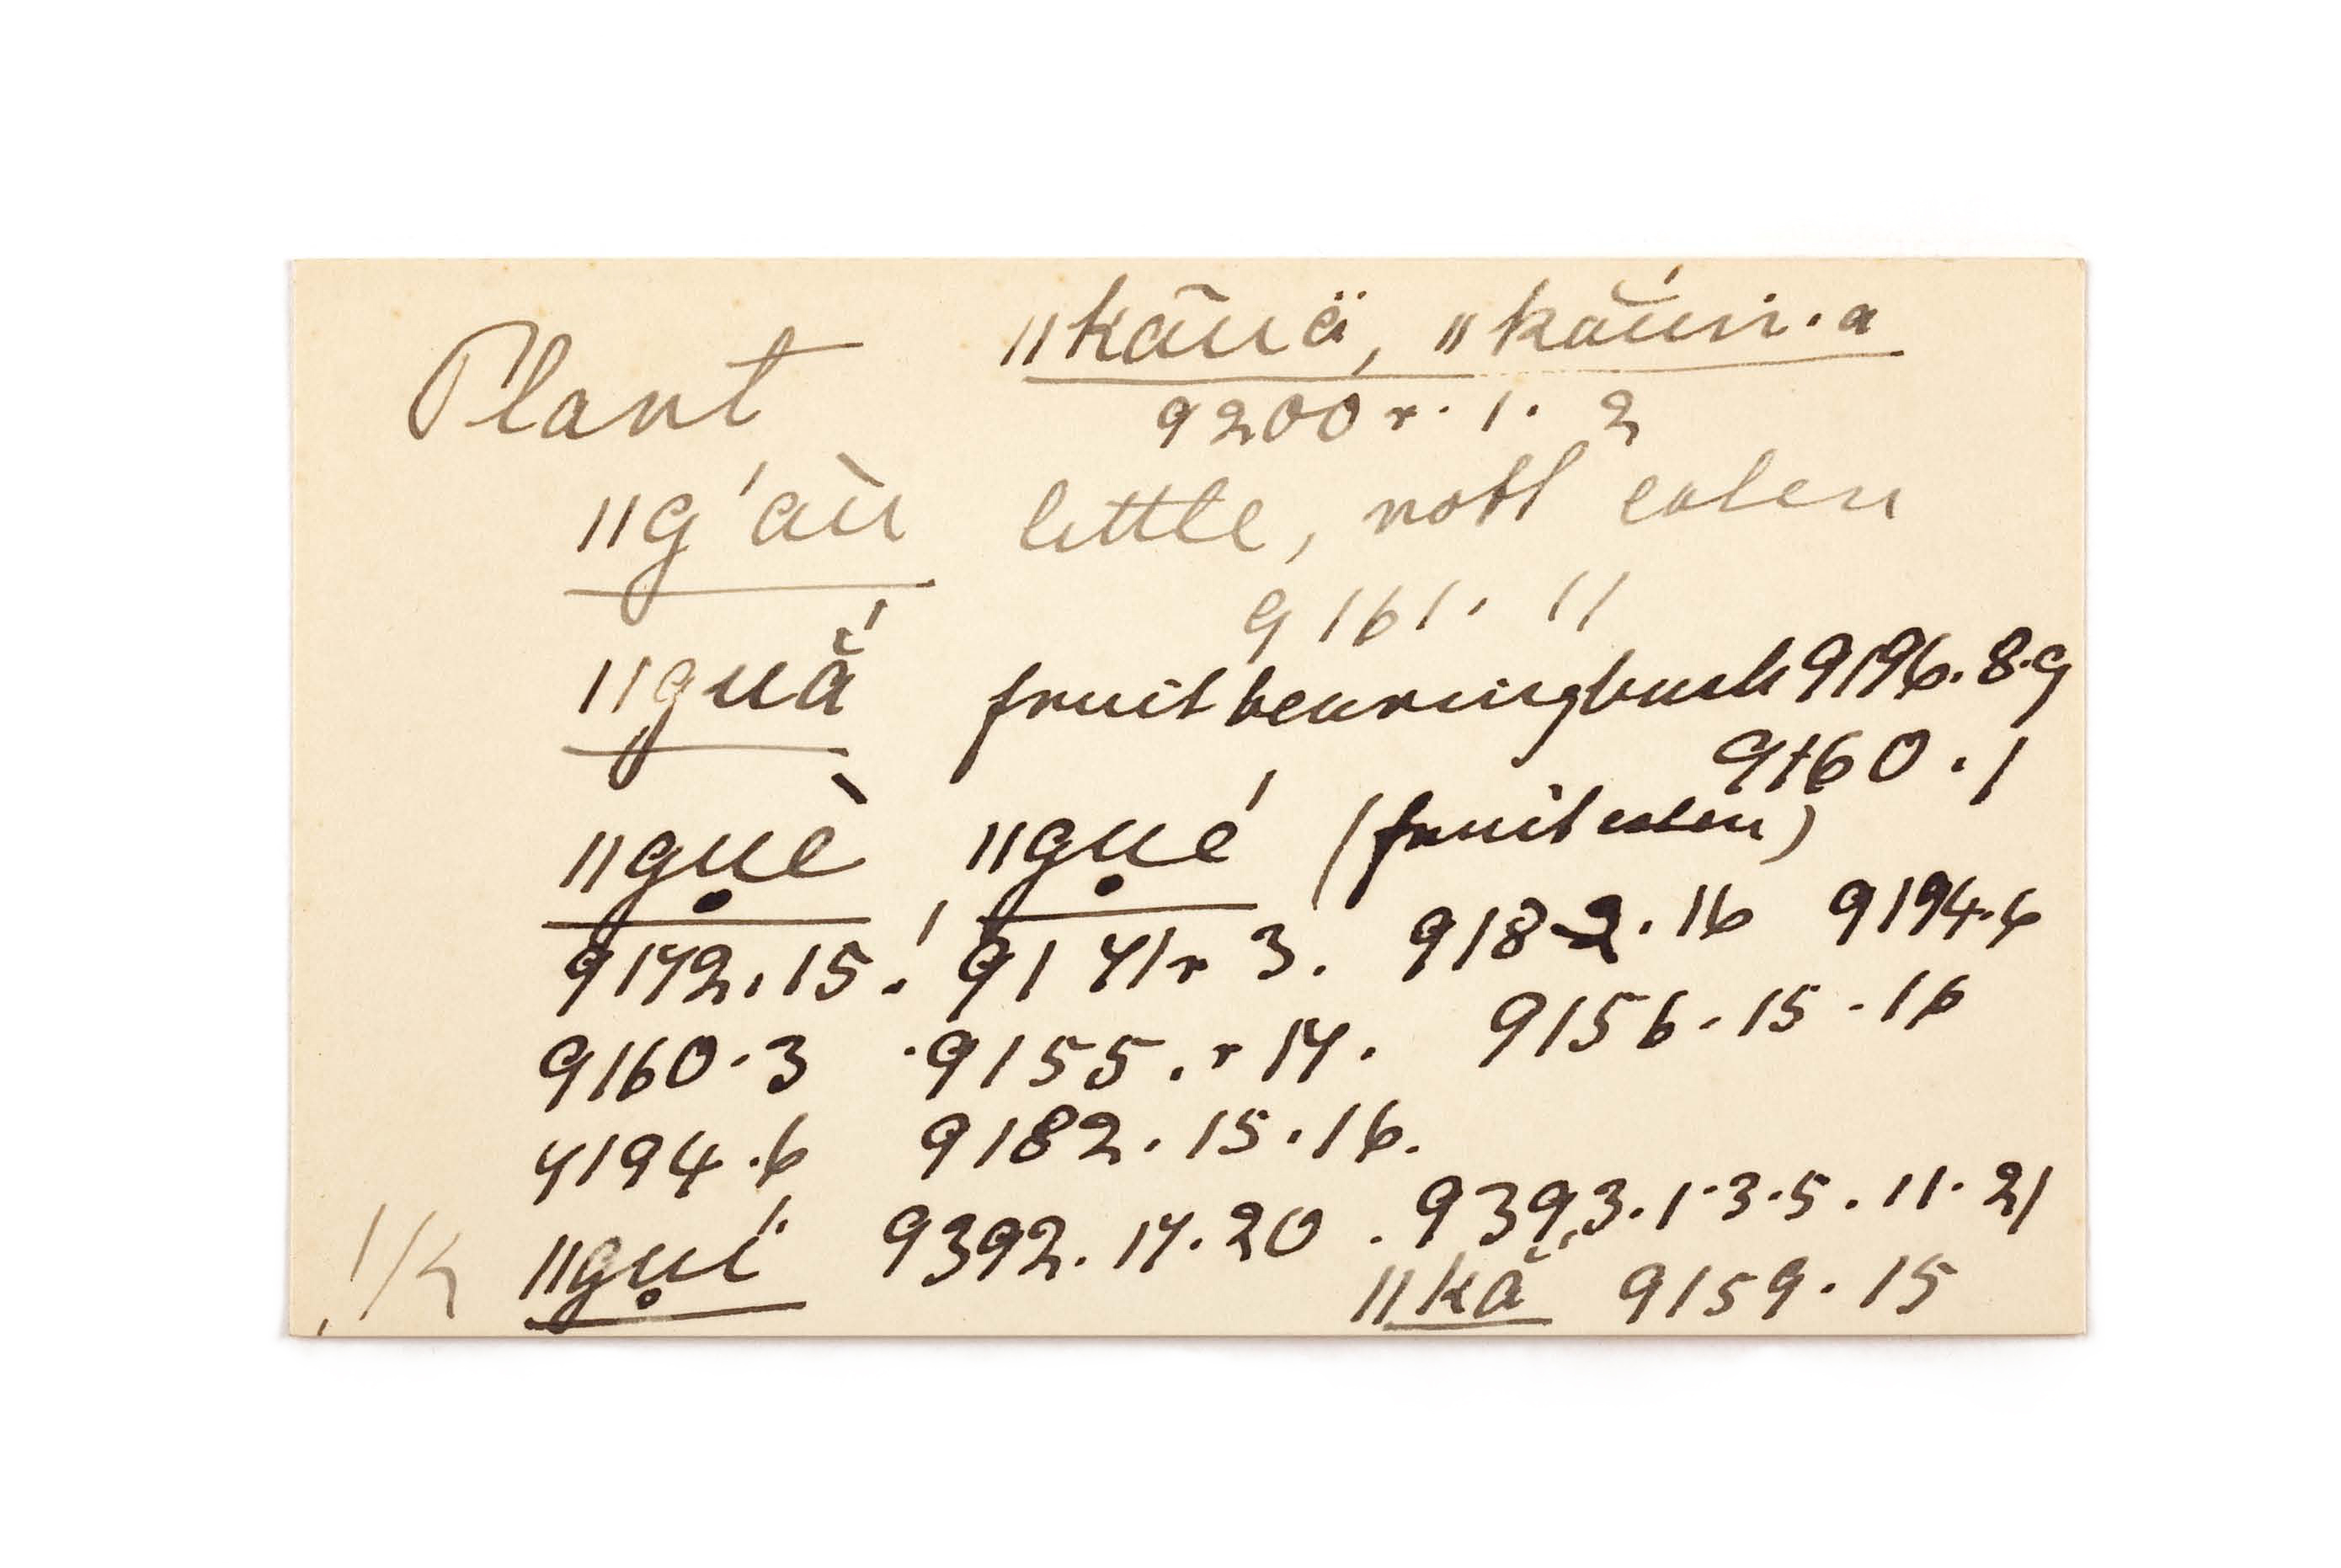 Plant ǁkāuä, ǁkắun.a
9200 r. 1. 2
ǁg'aù little, not eaten
9161. 11
ǁguắ fruit bearing bush 9196. 8.9
9160. 1
ǁgụè ǁgụé (fruit eaten)
9172. 15. 9171 r 3. 9182. 16 9194. 6
9160. 3 . 9155. r 17. 9156. 15. 16
7194. 6 9182. 15. 16.
ǁgụí 9392. 17. 20. 9393. 1. 3. 5. 11. 21
ǁkä 9159. 15